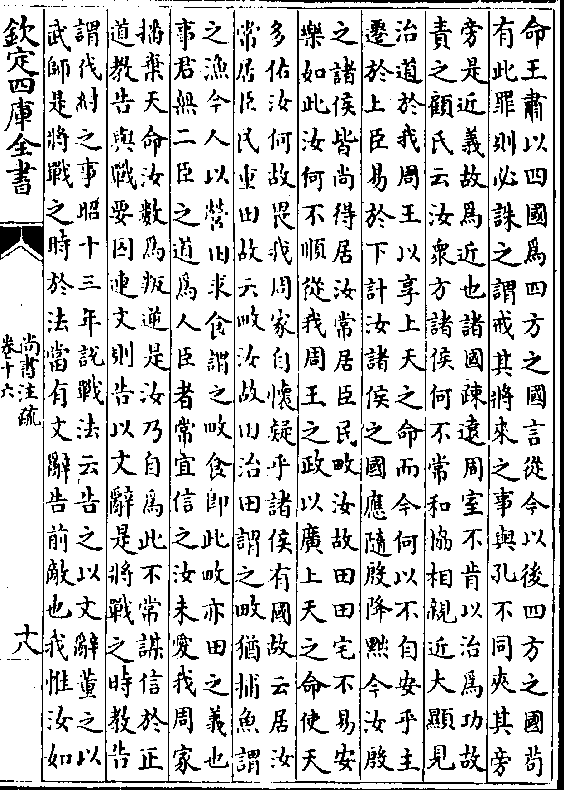 命王肅以四國爲四方之國言從今以後四方之國苟
有此罪則必誅之謂戒其將來之事與孔不同夾其旁
旁是近義故爲近也諸國疎遠周室不肯以治爲功故
責之顧氏云汝衆方諸侯何不常和協相親近大顯見
治道於我周王以享上天之命而今何以不自安乎主
遷於上臣易於下計汝諸侯之國應隨殷降黜今汝殷
之諸侯皆尚得居汝常居臣民畋汝故田田宅不易安
樂如此汝何不順從我周王之政以廣上天之命使天
多佑汝何故畏我周家自懷疑乎諸侯有國故云居汝
常居臣民重田故云畋汝故田治田謂之畋猶捕魚謂
之漁今人以營田求食謂之畋食即此畋亦田之義也
事君無二臣之道爲人臣者常宜信之汝未愛我周家
播棄天命汝數爲叛逆是汝乃自爲此不常謀信於正
道教告與戰要囚連文則告以文辭是將戰之時教告
謂伐紂之事昭十三年說戰法云告之以文辭董之以
武師是將戰之時於法當有文辭告前敵也我惟汝如
欽定四庫全書
尚書注疏
卷十六
十八